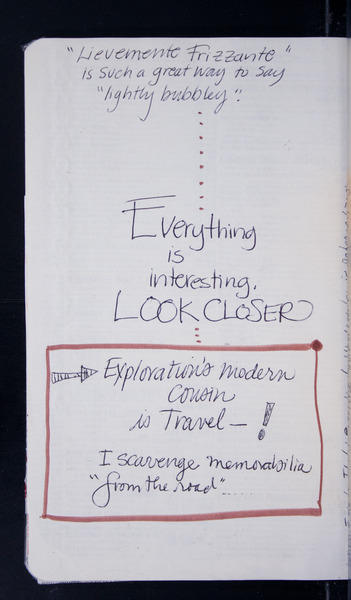 "Lievemente Frizzante"
is such a great way to say
"lightly bubbley".
Everything
is
interesting.
LOOK CLOSER
Exploration's modern
cousin
is Travel—!
I scavenge memorabilia
"from the road"......